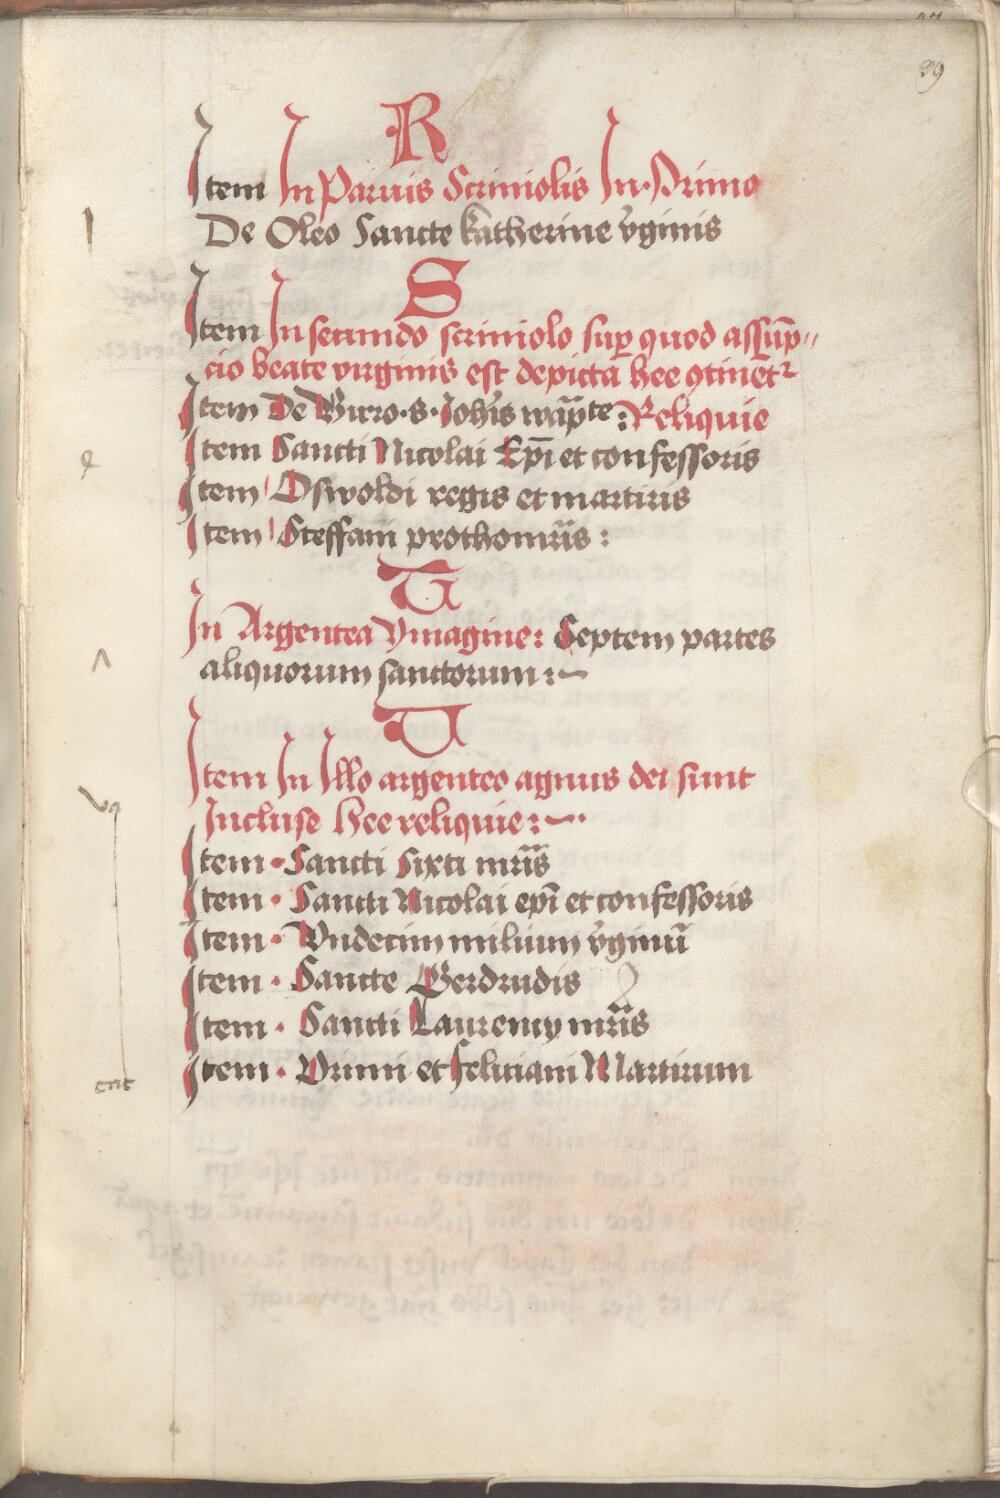 39
R
Item In Paruis Scriniolis In Primo
De Oleo Sancte katherine v̓ginis
S
Item In secundo scriniolo sup̱ quod assūp//
cio beate virginis est depicta hee ꝯtinēt᷑
Item De Giro s. Joh̓is wāpte: Reliquie
Item Sancti Nicolai Ep̄i et confessoris
Item Oswoldi regis et martiris
Item Steffani prothomr̄is:
T
In Argentea Ymagine: Septem partes
aliquorum sanctorum:~
V
Item In Illo argenteo agnus dei sunt
Incluse hee reliquie:~
Item Sancti Sixti mr̄is
Item Sancti Nicolai ep̄i et confessoris
Item Vndecim milium v̓ginū
Item Sancte Gerdrudis
Item Sancti Laurency mr̄is
Item Primi et feliciani Martirum
va
cat